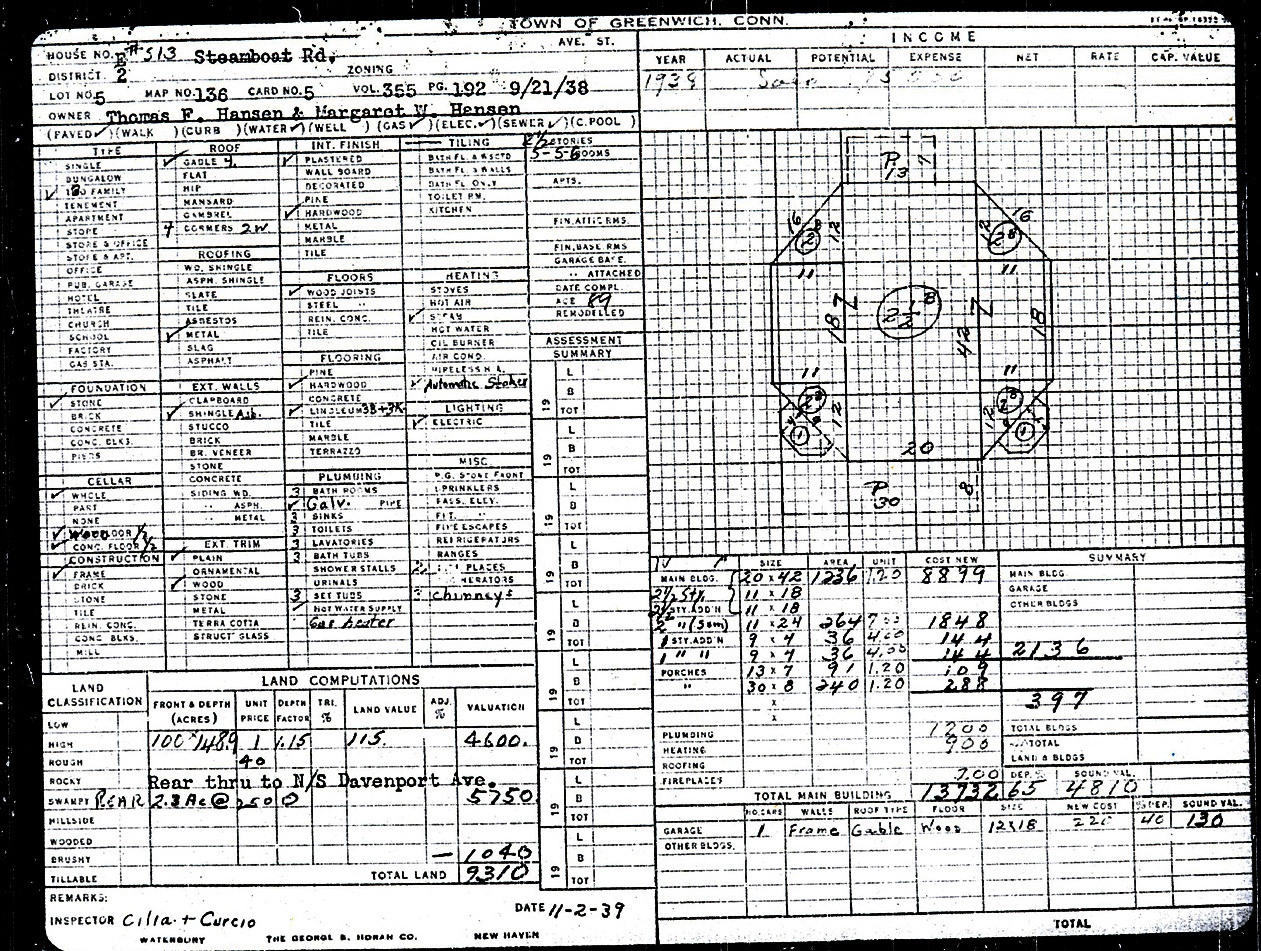 TOWN OF GREENWICH, CONN.
HOUSE NO. E#513 Steamboat Rd. AVE. ST.
DISTRICT 2 ZONING
LOT NO. 5 MAP NO. 136 CARD NO. 5 VOL. 355 PG. 192 9/21/38
OWNER Thomas F. Hansen & Margaret W. Hansen
(PAVED ✓)(WALK )(CURB )(WATER ✓)(WELL )(GAS ✓)(ELEC. ✓)(SEWER ✓)(C. POOL )
INCOME
YEAR ACTUAL POTENTIAL EXPENSE NET RATE CAP. VALUE
1939
TYPE
SINGLE
BUNGALOW
✓ FAMILY
TENEMENT
APARTMENT
STORE
STORE & OFFICE
STORE & APT.
OFFICE
PUB. GARAGE
HOTEL
THEATRE
CHURCH
SCHOOL
FACTORY
GAS STA.
FOUNDATION
✓ STONE
BRICK
CONCRETE
CONC. BLKS.
PIERS
CELLAR
✓ WHOLE
PART
NONE
✓ Wood FLOOR 1/2
✓ CONC. FLOOR 1/2
CONSTRUCTION
✓ FRAME
BRICK
STONE
TILE
REIN. CONC.
CONC. BLKS.
MILL
ROOF
✓ GABLE 4
FLAT
HIP
MANSARD
GAMBREL
DORMERS 2W.
ROOFING
WD. SHINGLE
ASPH. SHINGLE
SLATE
TILE
ASBESTOS
✓ METAL
SLAG
ASPHALT
EXT. WALLS
CLAPBOARD
✓ SHINGLE Asb.
STUCCO
BRICK
BR. VENEER
STONE
CONCRETE
SIDING WD.
" ASPH.
" METAL
EXT. TRIM
✓ PLAIN
ORNAMENTAL
✓ WOOD
STONE
METAL
TERRA COTTA
STRUCT GLASS
INT. FINISH
✓ PLASTERED
WALL BOARD
DECORATED
PINE
✓ HARDWOOD
METAL
MARBLE
TILE
FLOORS
✓ WOOD JOISTS
STEEL "
REIN. CONC.
TILE
FLOORING
PINE
✓ HARDWOOD
CONCRETE
✓ LINOLEUM 3B+3K
TILE
MARBLE
TERRAZZO
PLUMBING
3 BATH ROOMS
✓ Galv. PIPE
3 SINKS
3 TOILETS
3 LAVATORIES
3 BATH TUBS
SHOWER STALLS
URINALS
3 SET TUBS
✓ HOT WATER SUPPLY
Gas heater
TILING
BATH FL. & WSCTD
BATH FL. & WALLS
BATH FL. ONLY
TOILET RM.
KITCHEN
HEATING
STOVES
HOT AIR
✓ STEAM
HOT WATER
OIL BURNER
AIR COND.
PIPELESS H.A.
✓ Automatic Stoker
LIGHTING
✓ ELECTRIC
MISC.
P.G. STORE FRONT
SPRINKLERS
PASS. ELEV.
FIRE ESCAPES
REFRIGERATORS
RANGES
PLACES
chimneys
2 1/2 STORIES
5-5-6 ROOMS
APTS.
FIN. ATTIC RMS.
FIN. BASE RMS
GARAGE BASE.
" ATTACHED
DATE COMPL.
AGE 89
REMODELLED
ASSESSMENT SUMMARY
19 L B TOT
19 L B TOT
19 L B TOT
19 L B TOT
19 L B TOT
19 L B TOT
19 L B TOT
19 L B TOT
19 L B TOT
P. 7
13
16 12 12 16
11 11
18 7 2 1/2 B 42 7 18
11 11
12 12
20
P. 30 8
SIZE AREA UNIT COST NEW
MAIN BLDG. 20 x 42 1236 7.20 8899
2 1/2 Sty. 11 x 18
2 1/2 STY. ADD'N 11 x 18
2 " (Som) 11 x 24 264 7.00 1848
1 STY. ADD'N 9 x 4 36 4.00 144
1 " " 9 x 4 36 4.00 144
PORCHES 13 x 7 91 1.20 109
" 30 x 8 240 1.20 288
PLUMBING 1200
HEATING 900
ROOFING
FIREPLACES 200
TOTAL MAIN BUILDING 13732
SUMMARY
MAIN BLDG.
GARAGE
OTHER BLDGS
2136
397
TOTAL BLDGS
TOTAL
LAND & BLDGS
DEP. % SOUND VAL.
65 4810
NO. CARS WALLS ROOF TYPE FLOOR SIZE NEW COST % DEP. SOUND VAL.
GARAGE 1 Frame Gable Wood 12x18 220 40 130
OTHER BLDGS.
TOTAL
LAND CLASSIFICATION
LOW
HIGH
ROUGH
ROCKY
SWAMPY
HILLSIDE
WOODED
BRUSHY
TILLABLE
LAND COMPUTATIONS
FRONT & DEPTH (ACRES) UNIT PRICE DEPTH FACTOR TRI. % LAND VALUE ADJ. % VALUATION
100 x 1489 1 1.15 115. 4600.
40
Rear thru to N/S Davenport Ave.
REAR 2.3 Ac @ 2500 5750
— 1040
TOTAL LAND 9310
REMARKS:
INSPECTOR Cilla + Curcio DATE 11-2-39
WATERBURY THE GEORGE B. HORAN CO. NEW HAVEN